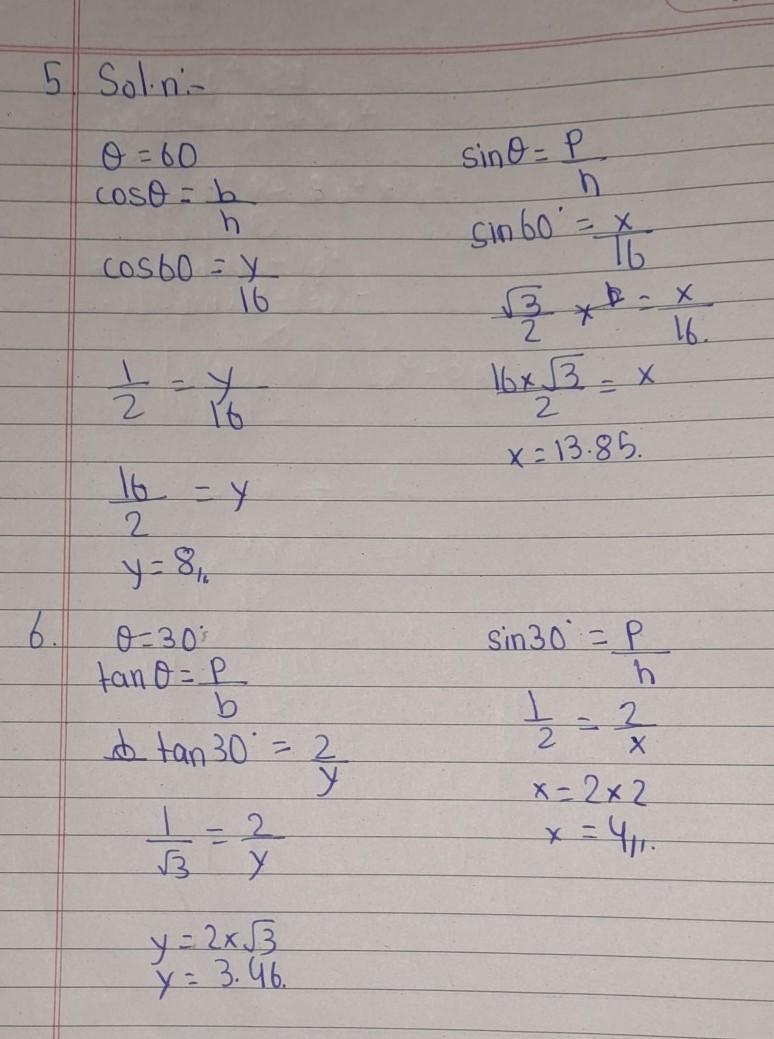 5. Sol.n:-
θ = 60
cosθ = b/h
cos60 = y/16
1/2 = y/16
16/2 = y
y = 8,,.
sinθ = P/h
sin60° = x/16
√3/2 × = x/16.
16×√3/2 = x
x = 13.85.
6. θ = 30°
tanθ = P/b
tan30° = 2/y
1/√3 = 2/y
y = 2×√3
y = 3.46.
sin30° = P/h
1/2 = 2/x
x = 2×2
x = 4,,.